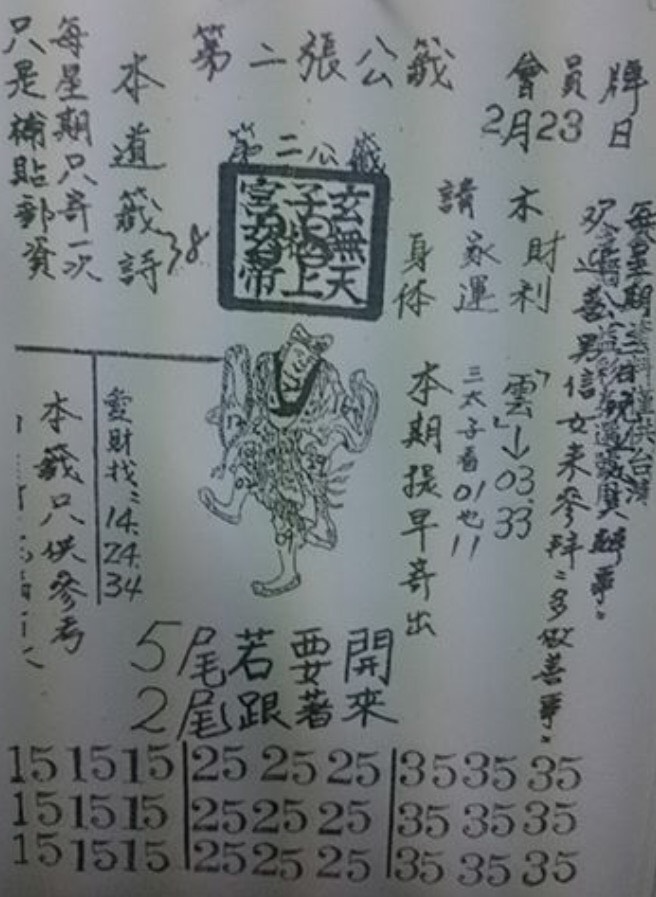 第二張公籤
會員牌
2月23日
每星期只寄一次
只是補貼郵資
本道籤詩38
第二公籤
玄無天
子 上
宮 帝
請
木財利
家運
身体
欢迎善男信女來參拜:多做善事:
「雲」→03.33
三太子看01也11
本期提早寄出
愛財找:
14.
24.
34
本籤只供參考
5尾若要開
2尾跟著來
15 15 15 25 25 25 35 35 35
15 15 15 25 25 25 35 35 35
15 15 15 25 25 25 35 35 35